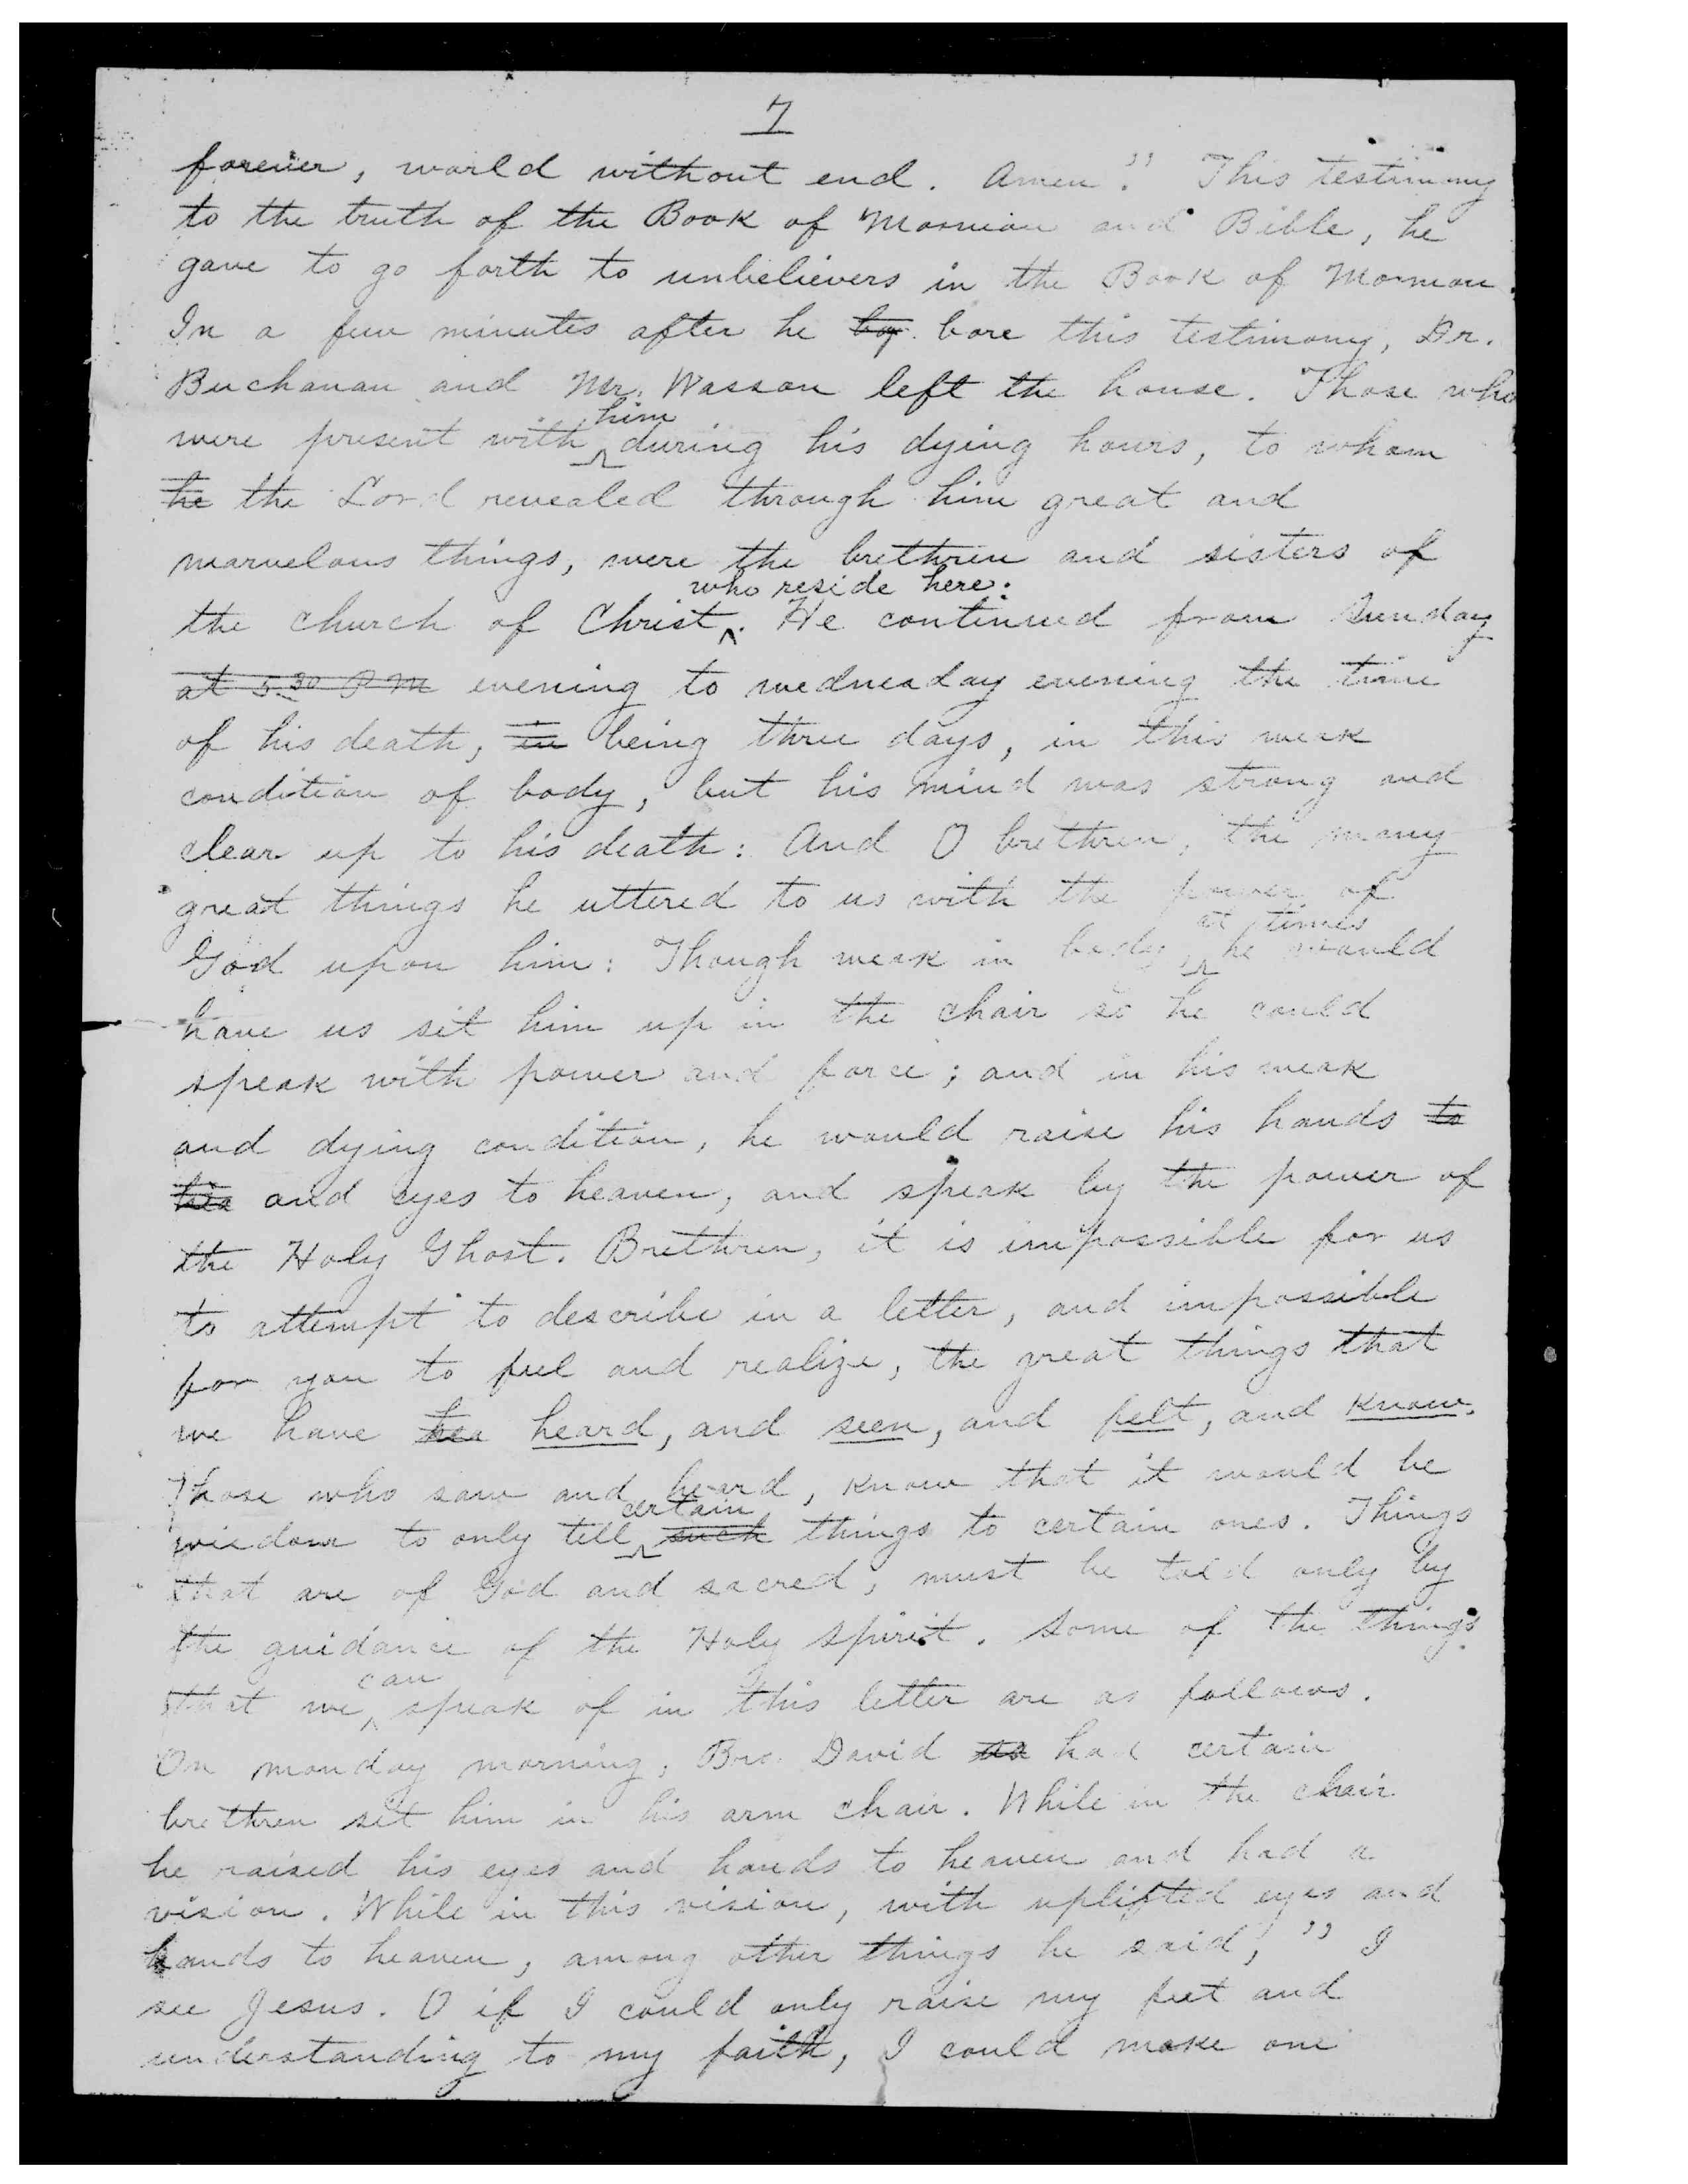 7
forever, world without end. Amen." This testimony
to the truth of the Book of Mormon and Bible, he
gave to go forth to unbelievers in the Book of Mormon.
In a few minutes after he by bore this testimony, Dr.
Buchanan and Mr. Wasson left the house. Those who
him
were present with during his dying hours, to whom
he the Lord revealed through him great and
marvelous things, were the brethren and sisters of
who reside here.
the church of Christ. He continued from Sunday
at 5.30 P M evening to wednesday evening the time
of his death, in being three days, in this weak
condition of body, but his mind was strong and
clear up to his death: And O brethren, the many
great things he uttered to us with the power of
at times
God upon him: Though weak in body, he would
have us sit him up in the chair so he could
speak with power and force; and in his weak
and dying condition, he would raise his hands to
his and eyes to heaven, and speak by the power of
the Holy Ghost. Brethren, it is impossible for us
to attempt to describe in a letter, and impossible
for you to feel and realize, the great things that
we have hea heard, and seen, and felt, and know.
Those who saw and heard, know that it would be
certain
wisdom to only tell such things to certain ones. Things
that are of God and sacred, must be told only by
the guidance of the Holy Spirit. Some of the things
can
that we speak of in this letter are as follows.
On monday morning, Bro. David as had certain
brethren set him in his arm chair. While in the chair
he raised his eyes and hands to heaven and had a
vision. While in this vision, with uplifted eyes and
hands to heaven, among other things he said, "I
see Jesus. O if I could only raise my feet and
understanding to my faith, I could make one